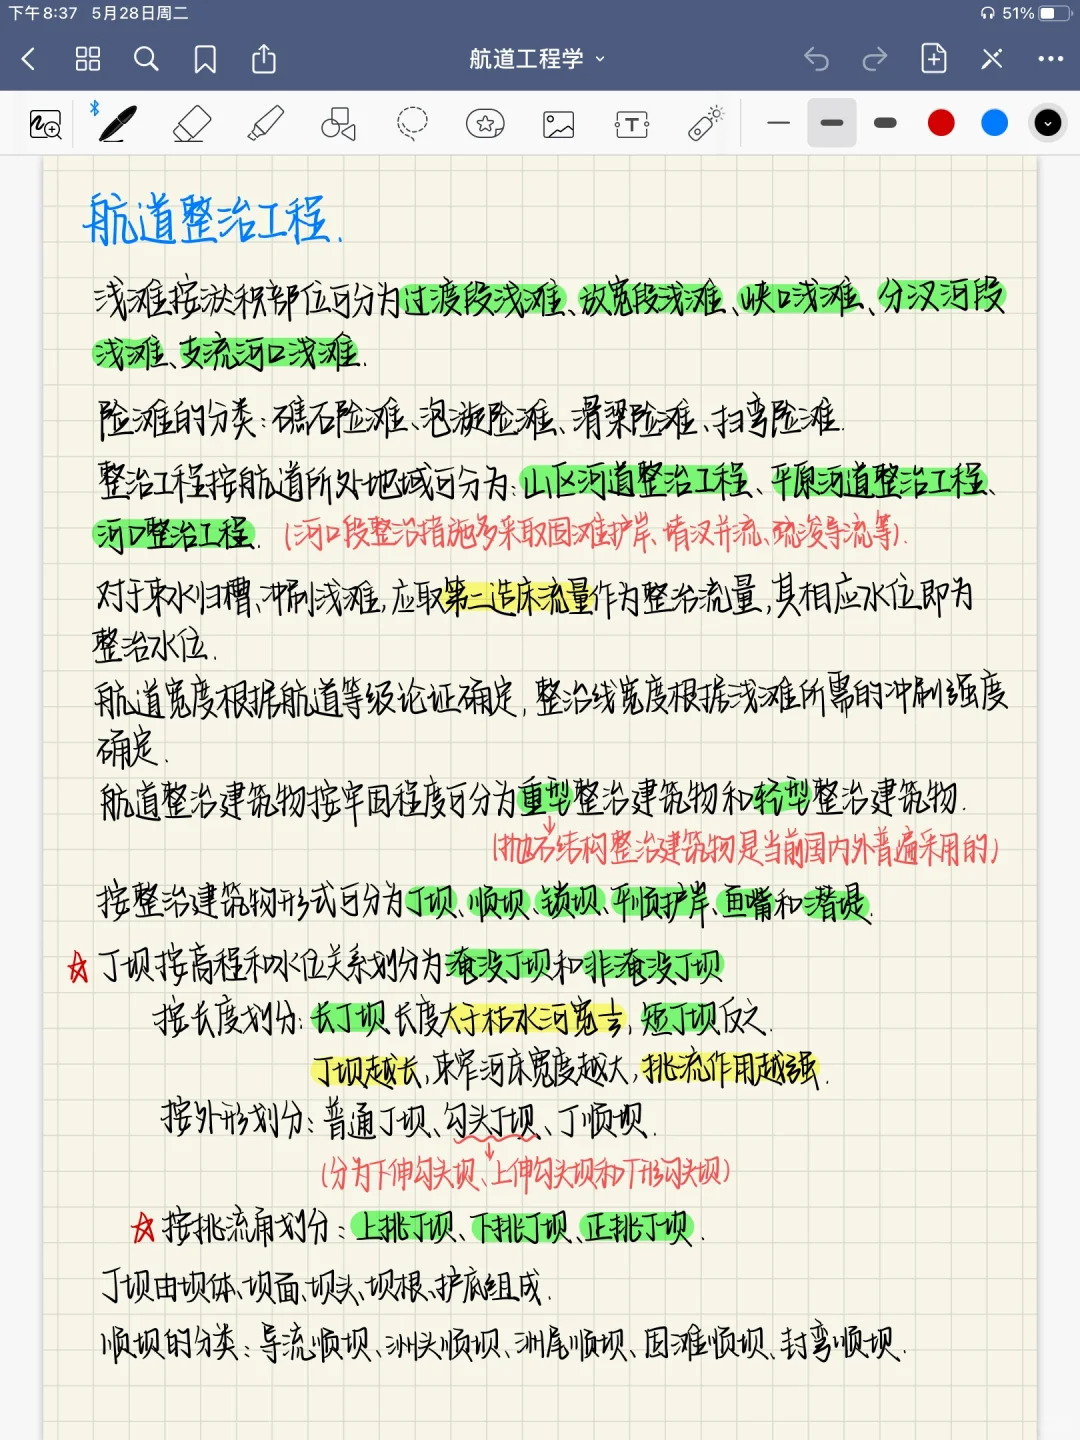 下午8:37 5月28日周二 51%
航道工程学
航道整治工程.
浅滩按淤积部位可分为过渡段浅滩、放宽段浅滩、峡口浅滩、分汊河段
浅滩、支流河口浅滩.
险滩的分类:礁石险滩、泡漩险滩、滑梁险滩、扫弯险滩.
整治工程按航道所处地域可分为:山区河道整治工程、平原河道整治工程、
河口整治工程. (河口段整治措施多采取固滩护岸、堵汊并流、疏浚导流等).
对于束水归槽、冲刷浅滩,应取第二造床流量作为整治流量,其相应水位即为
整治水位.
航道宽度根据航道等级论证确定,整治线宽度根据浅滩所需的冲刷强度
确定.
航道整治建筑物按牢固程度可分为重型整治建筑物和轻型整治建筑物.
(抛石结构整治建筑物是当前国内外普遍采用的)
按整治建筑物形式可分为丁坝、顺坝、锁坝、平顺护岸、鱼嘴和潜堤.
☆丁坝按高程和水位关系划分为淹没丁坝和非淹没丁坝
按长度划分:长丁坝长度大于枯水河宽⅓,短丁坝反之.
丁坝越长,束窄河床宽度越大,挑流作用越强.
按外形划分:普通丁坝、勾头丁坝、丁顺坝.
(分为下伸勾头坝、上伸勾头坝和T形勾头坝)
☆按挑流角划分:上挑丁坝、下挑丁坝、正挑丁坝.
丁坝由坝体、坝面、坝头、坝根、护底组成.
顺坝的分类:导流顺坝、洲头顺坝、洲尾顺坝、固滩顺坝、封弯顺坝.